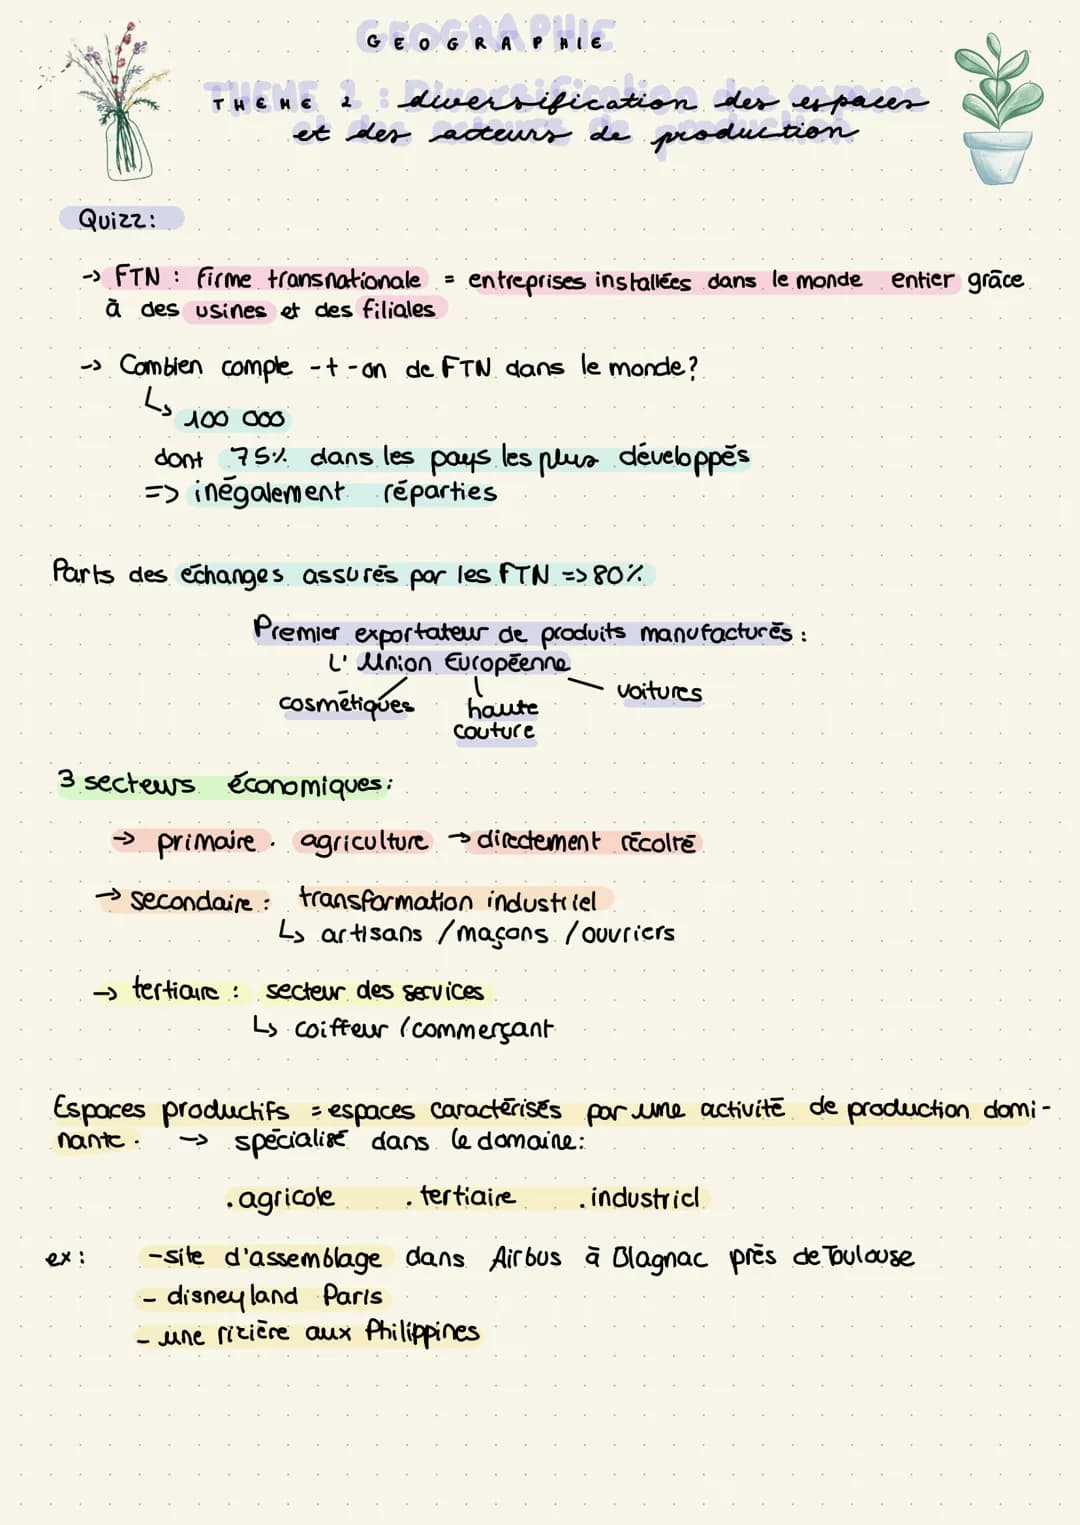 GEOGRAPHIE
THEME 2 : diversification des espaces
et des acteurs de production
Quizz:
-> FTN : firme transnationale = entreprises installées dans le monde entier grâce
à des usines et des filiales
-> Combien compte -t-on de FTN dans le monde?
↳ 100 000
dont 75% dans les pays les plus développés
=> inégalement réparties
Parts des échanges assurés par les FTN => 80%
Premier exportateur de produits manufacturés :
L'Union Européenne
cosmétiques haute couture voitures
3 secteurs économiques:
-> primaire . agriculture -> directement récolté
-> secondaire : transformation industriel
↳ artisans / maçons / ouvriers
-> tertiaire : secteur des services
↳ coiffeur / commerçant
Espaces productifs = espaces caractérisés par une activité de production domi-
nante. -> spécialisé dans le domaine:
.agricole .tertiaire .industriel
ex : -site d'assemblage dans Airbus à Blagnac près de Toulouse
- disneyland Paris
- une rizière aux Philippines